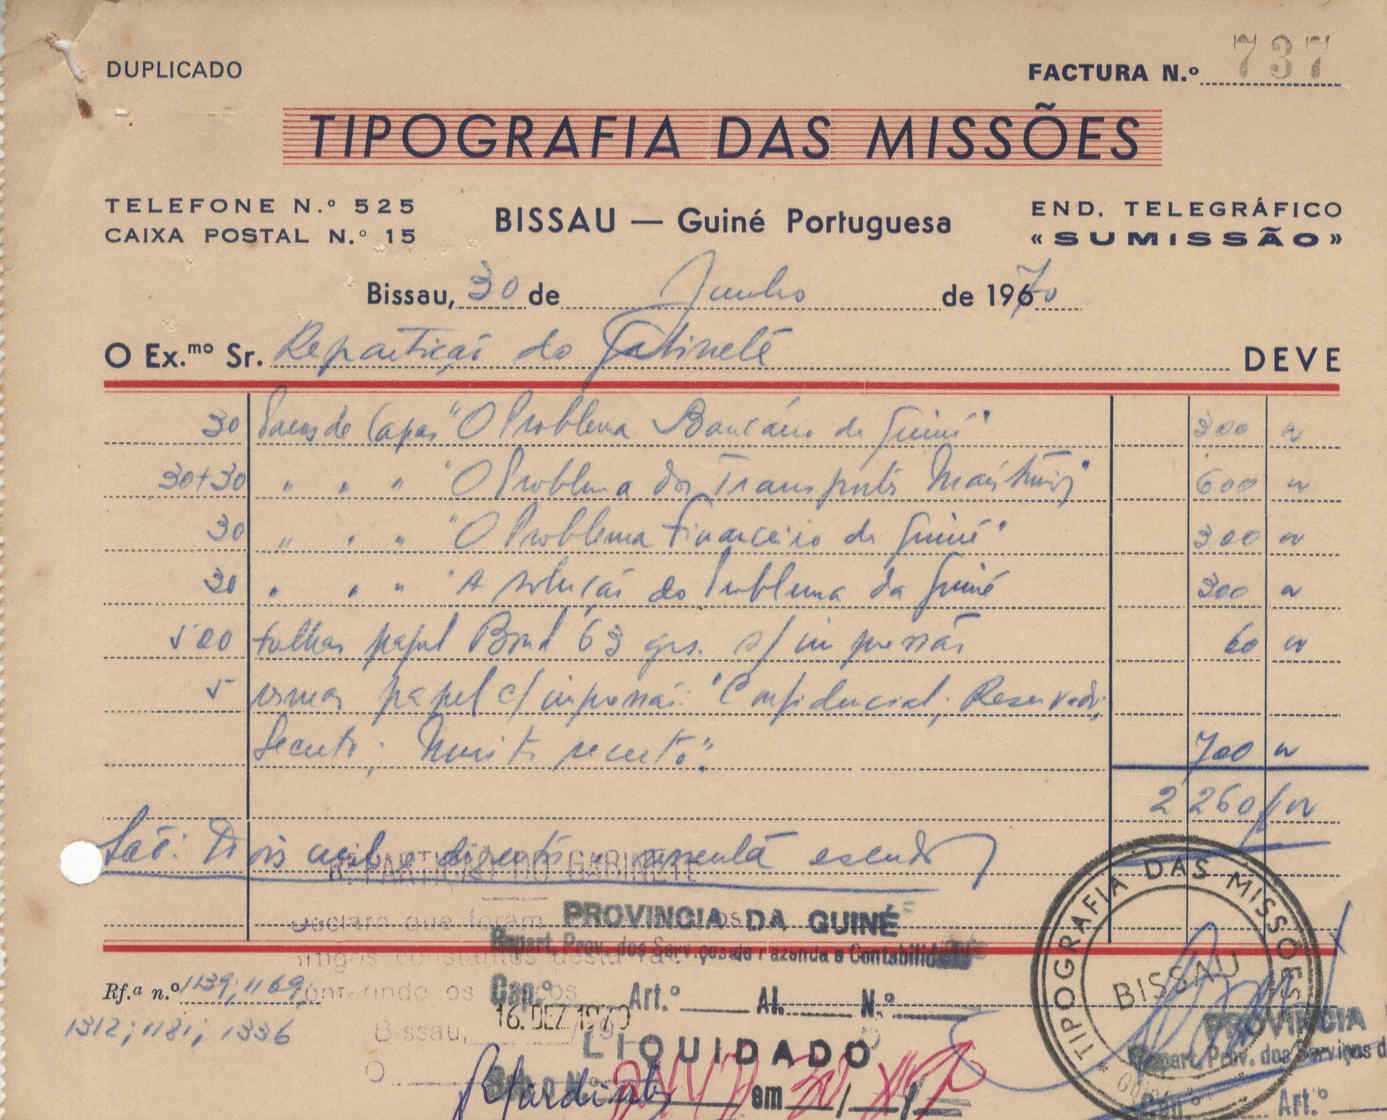 DUPLICADO
FACTURA N.º 737
TIPOGRAFIA DAS MISSÕES
TELEFONE N.º 525
CAIXA POSTAL N.º 15
BISSAU — Guiné Portuguesa
END. TELEGRÁFICO
« SUMISSÃO »
Bissau, 30 de Junho de 1970
O Ex.mo Sr. Repartição do Gabinete DEVE
30 Sacos de Capas "O Problema Bancário da Guiné" 300
30+30 " " " "O Problema dos Transportes Marítimos" 600
30 " " " "O Problema Financeiro da Guiné" 300
30 " " " "A solução do Problema da Guiné 300
500 folhas papel Bond 63 grs. s/ impressão 60
5 resmas papel c/ impressão "Confidencial; Reservado;
Secreto; Muito secreto". 700
2 260
São: Dois mil e duzentos e sessenta escudos
REPARTIÇÃO DO GABINETE
Declaro que foram
PROVINCIA DA GUINÉ
Repart. Prov. dos Serviços de Fazenda e Contabilidade
artigos constantes desta
Rf.ª n.º 1139; 1169,
1312; 1181; 1336
Cap.º Art.º Al. N.º
16. DEZ 1970
Bissau,
LIQUIDADO
O
em
TIPOGRAFIA DAS MISSÕES
BISSAU
PROVINCIA
Repart. Prov. dos Serviços d
Art.º